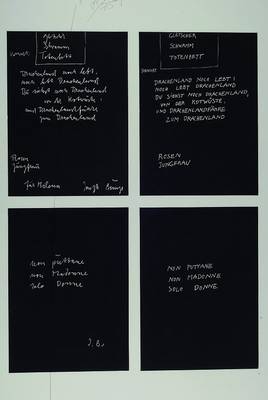 Schwamm
Totenbett
Drachenland noch lebt,
noch lebt Drachenland
Du siehst noch Drachenland
von der Kotwüste
und Drachenlandfähre
zum Drachenland
Rosen
Jungfrau
Für
GLATSCHER
SCHWAMM
TOTENBETT
DRACHENLAND NOCH LEBT !
NOCH LEBT DRACHENLAND
DU SIEHST NOCH DRACHENLAND,
VON DER KOTWÜSTE,
UND DRACHENLANDFÄHRE
ZUM DRACHENLAND
ROSEN
JUNGFRAU
non puttane
non Madonne
solo Donne
J.B.
NON PUTTANE
NON MADONNE
SOLO DONNE